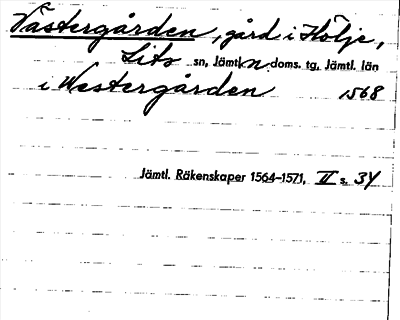 Västergården, gård i Hölje,
Lits sn, Jämtl. n. doms. tg, Jämtl. län
i Westergården 1568
Jämtl. Räkenskaper 1564–1571, II s. 34